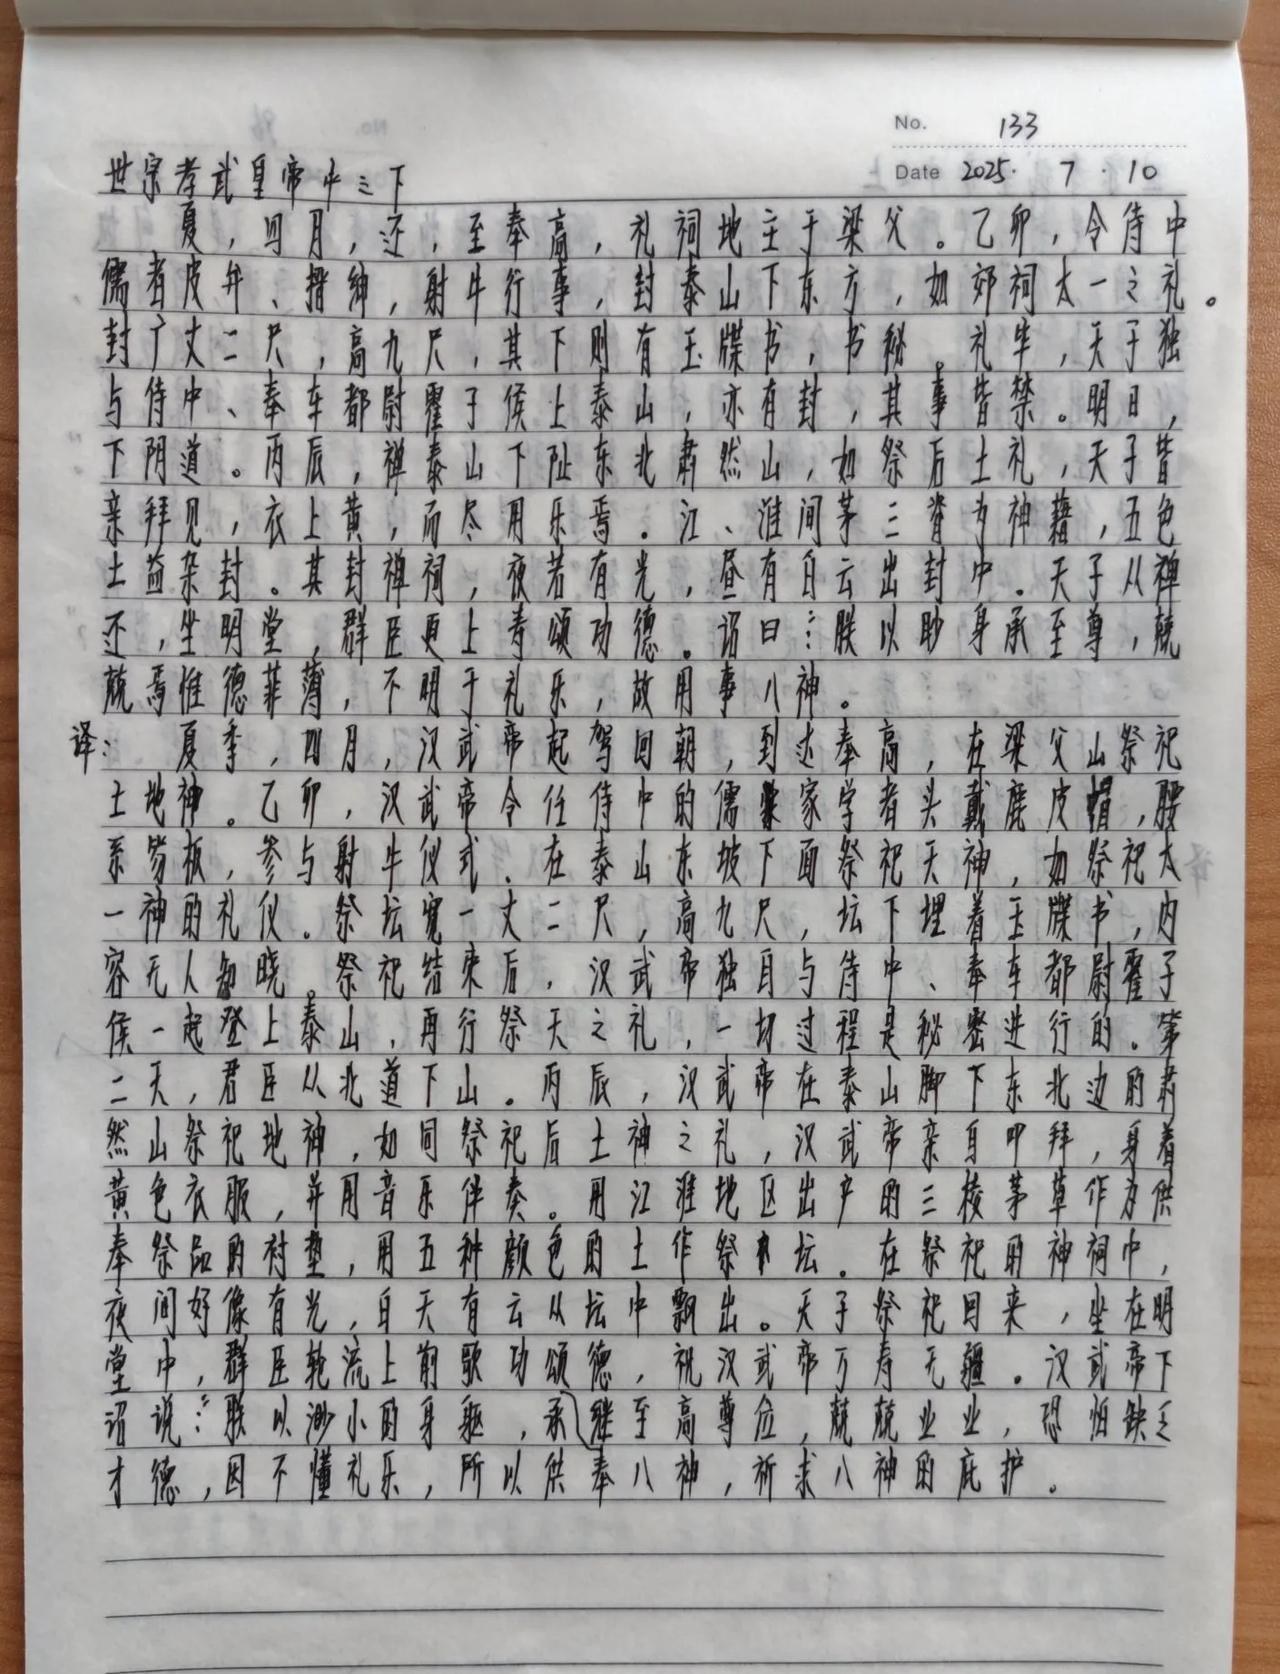 No. 133
Date 2025. 7. 10
世宗孝武皇帝中之下
夏,四月,还,至奉高,礼祠地主于梁父。乙卯,令侍中
儒者皮弁、搢绅,射牛行事,封泰山下东方,如郊祠太一之礼。
封广丈二尺,高九尺,其下则有玉牒书,书秘。礼毕,天子独
与侍中、奉车都尉霍子侯上泰山,亦有封,其事皆禁。明日,
下阴道。丙辰,禅泰山下阯东北肃然山,如祭后土礼,天子皆
亲拜见,衣上黄,而尽用乐焉。江、淮间茅三脊为神藉,五色
土益杂封。其封禅祠,夜若有光,昼有白云出封中。天子从禅
还,坐明堂,群臣更上寿颂功德。诏曰:朕以眇身承至尊,兢
兢焉惟德菲薄,不明于礼乐,故用事八神。
译:夏季,四月,汉武帝起驾回朝,到达奉高,在梁父山祭祀
土地神。乙卯,汉武帝令任侍中的儒家学者头戴鹿皮帽,腰
系笏板,参与射牛仪式.在泰山东坡下面祭祀天神,如祭祀太
一神的礼仪。祭坛宽一丈二尺,高九尺,坛下埋着玉牒书,内
容无人知晓。祭祀结束后,汉武帝独自与侍中、奉车都尉霍子
侯一起登上泰山,再行祭天之礼,一切过程是秘密进行的。第
二天,君臣从北道下山。丙辰,汉武帝在泰山脚下东北边的肃
然山祭祀地神,如同祭祀后土神之礼,汉武帝亲自叩拜,身着
黄色衣服,并用音乐伴奏。用江淮地区出产的三棱茅草作为供
奉祭品的衬垫,用五种颜色的土作祭坛。在祭祀的神祠中,
夜间好像有光,白天有云从坛中飘出。天子祭祀回来,坐在明
堂中,群臣轮流上前歌功颂德,祝汉武帝万寿无疆。汉武帝下
诏说:朕以渺小的身躯,承继至高尊位,兢兢业业,恐怕缺乏
才德,因不懂礼乐,所以供奉八神,祈求八神的庇护.